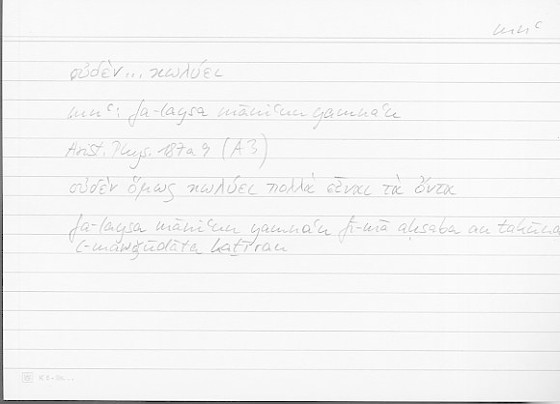 mnʿ
οὐδὲν... κωλύει
mnʿ: fa-laysa māniʿun yamnaʿu
Arist. Phys. 187a9 (A3)
οὐδὲν ὅμως κωλύει πολλὰ εἶναι τὰ ὄντα
fa-laysa māniʿun yamnaʿu fī-mā aḥsabu an takūna
l-mawǧūdātu kaṯīran